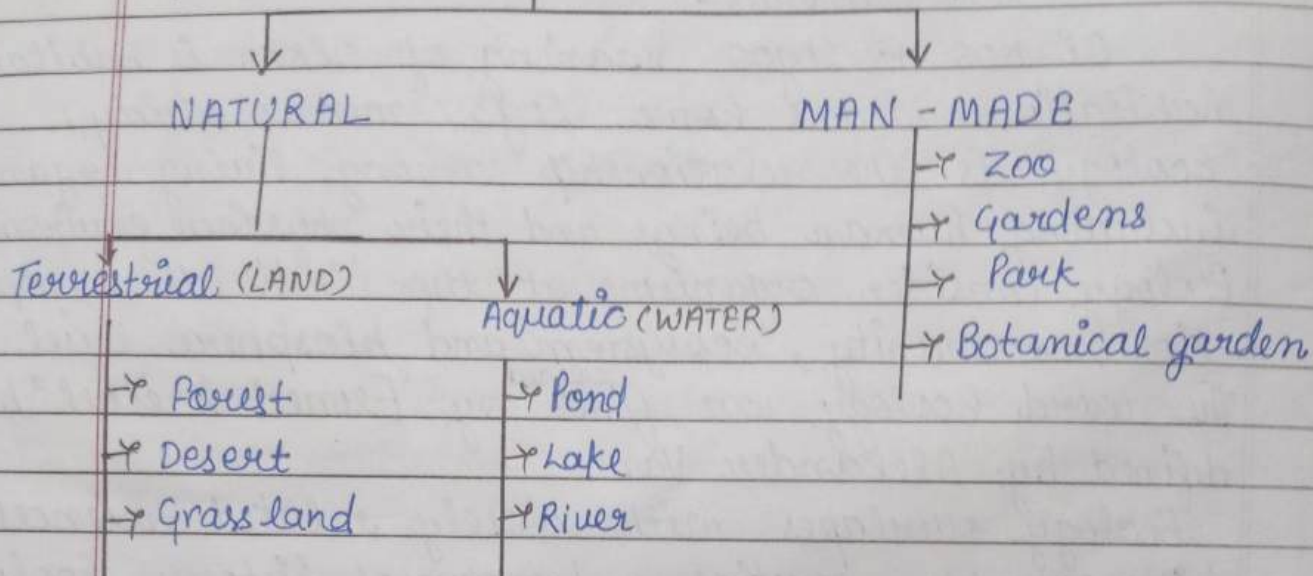 NATURAL
MAN - MADE
Zoo
Gardens
Park
Botanical garden
Terrestrial (LAND)
Aquatic (WATER)
Forest
Desert
Grass land
Pond
Lake
River